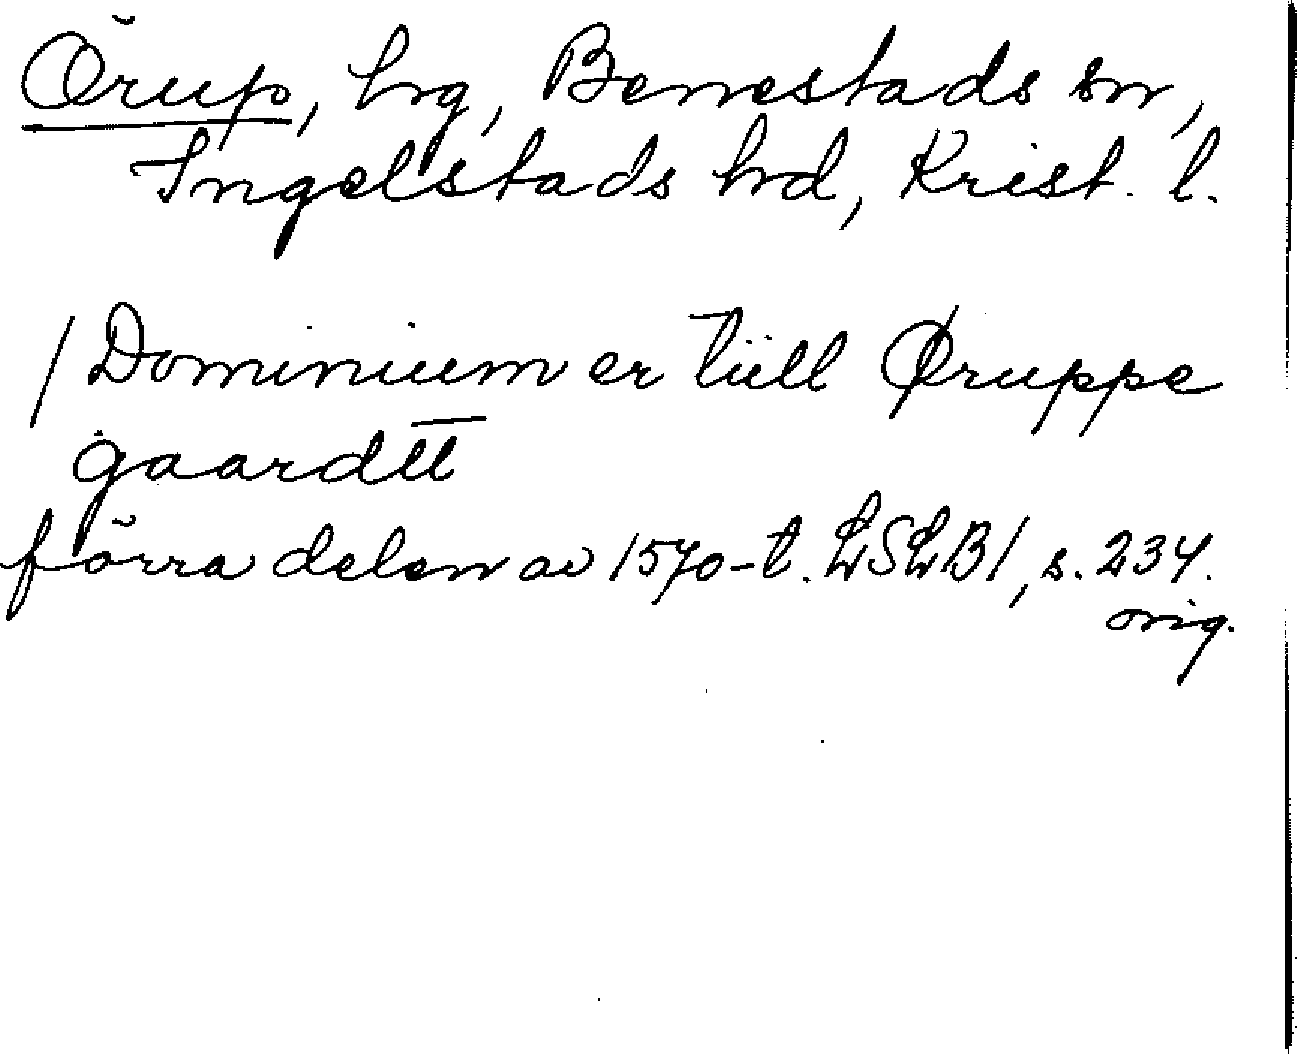 Örup, hrg, Benestads sn,
Ingelstads hrd, Krist. l.
/ Dominium er tüll Øruppe
gaardtt
förra delen av 1570-t. LSLB1, s. 234.
orig.